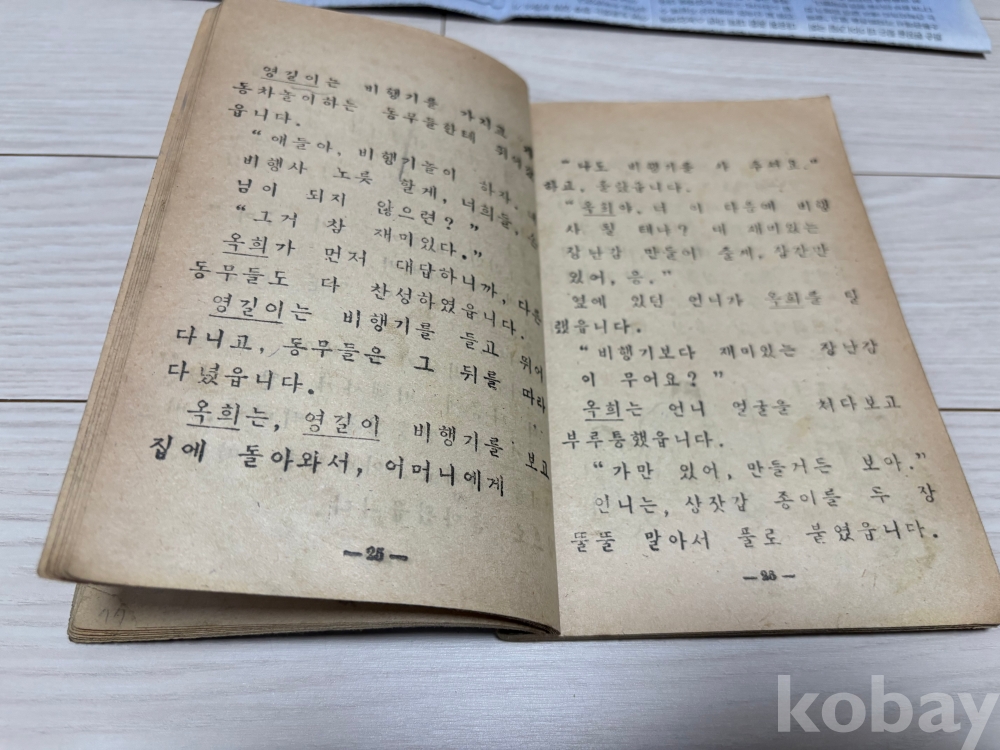 영길이는 비행기를 가지고
동차놀이하는 동무들한테
읍니다.
"얘들아, 비행기놀이 하자.
비행사 노릇 할게, 너희들,
님이 되지 않으련?"
"그거 참 재미있다."
옥희가 먼저 대답하니까, 다른
동무들도 다 찬성하였읍니다.
영길이는 비행기를 들고 뛰어
다니고, 동무들은 그 뒤를 따라
다녔읍니다.
옥희는, 영길이 비행기를 보고
집에 돌아와서, 어머니에게
—25—
"나도 비행기를 사 주세요."
하고, 졸랐읍니다.
"옥희야, 너 이 다음에 비행
사 될 테냐? 내 재미있는
장난감 만들어 줄게, 잠간만
있어, 응."
옆에 있던 언니가 옥희를 달
랬읍니다.
"비행기보다 재미있는 장난감
이 무어요?"
옥희는 언니 얼굴을 치다보고
부루퉁했읍니다.
"가만 있어, 만들거든 보아."
언니는, 상잣갑 종이를 두 장
뚤뚤 말아서 풀로 붙였읍니다.
—26—
kobay